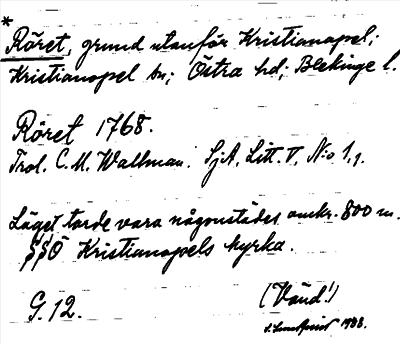 *
Röret, grund utanför Kristianopel;
Kristianopel sn; Östra hd; Blekinge l.
Röret 1768.
Trol. C. M. Wallman. SjA, Litt. V, N:o 1,1.
Läget torde vara någonstädes omkr. 800 m.
SSÖ Kristianopels kyrka.
G. 12.
(Vänd!)
1938.